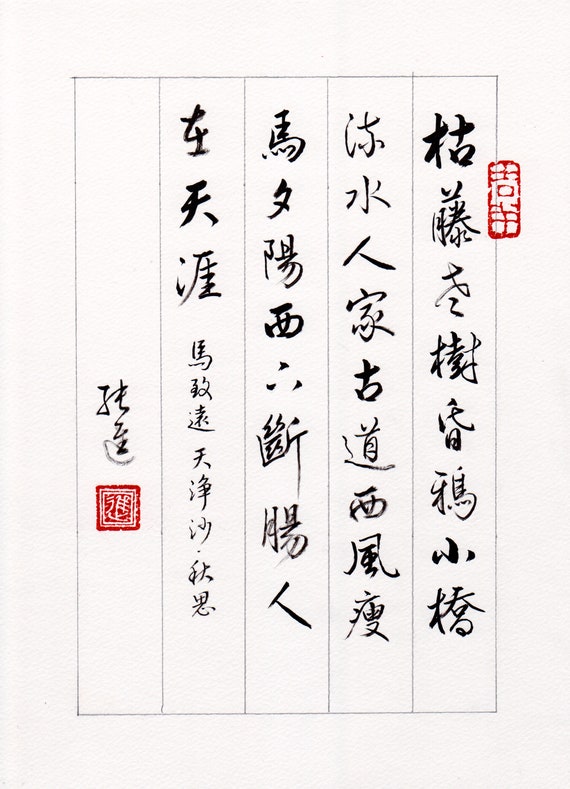 枯藤老樹昏鴉小橋
流水人家古道西風瘦
馬夕陽西下斷腸人
在天涯
馬致遠 天淨沙·秋思
张進
進